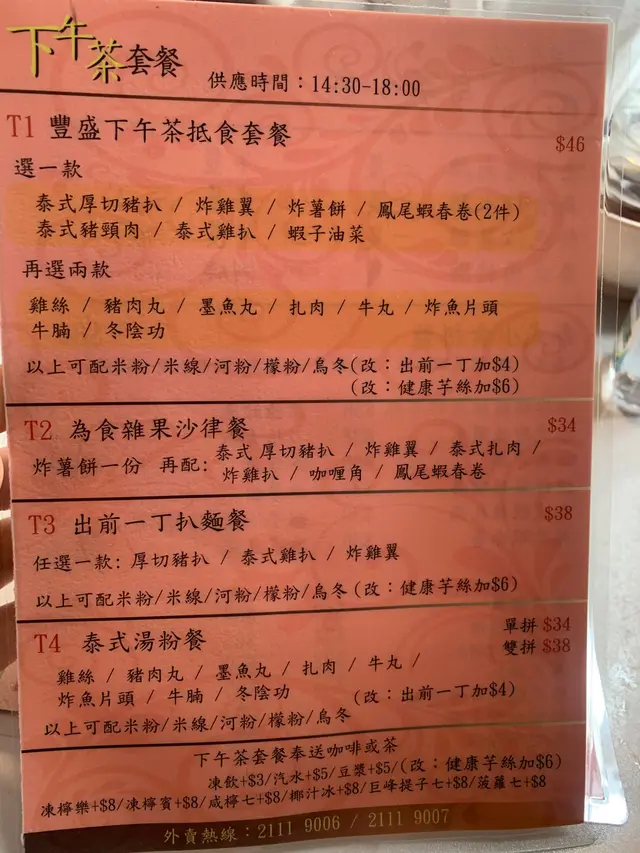 下午茶套餐 供應時間：14:30-18:00
T1 豐盛下午茶抵食套餐 $46
選一款
泰式厚切豬扒 / 炸雞翼 / 炸薯餅 / 鳳尾蝦春卷(2件)
泰式豬頸肉 / 泰式雞扒 / 蝦子油菜
再選兩款
雞絲 / 豬肉丸 / 墨魚丸 / 扎肉 / 牛丸 / 炸魚片頭
牛腩 / 冬陰功
以上可配米粉/米線/河粉/檬粉/烏冬(改：出前一丁加$4)
(改：健康芋絲加$6)
T2 為食雜果沙律餐 $34
炸薯餅一份 再配: 泰式 厚切豬扒 / 炸雞翼 / 泰式扎肉 /
炸雞扒 / 咖喱角 / 鳳尾蝦春卷
T3 出前一丁扒麵餐 $38
任選一款: 厚切豬扒 / 泰式雞扒 / 炸雞翼
以上可配米粉/米線/河粉/檬粉/烏冬(改：健康芋絲加$6)
T4 泰式湯粉餐 單拼 $34
雙拼 $38
雞絲 / 豬肉丸 / 墨魚丸 / 扎肉 / 牛丸 /
炸魚片頭 / 牛腩 / 冬陰功 (改：出前一丁加$4)
以上可配米粉/米線/河粉/檬粉/烏冬
下午茶套餐奉送咖啡或茶
凍飲+$3/汽水+$5/豆漿+$5/(改：健康芋絲加$6)
凍檸樂+$8/凍檸賓+$8/咸檸七+$8/椰汁冰+$8/巨峰提子七+$8/菠蘿七+$8
外賣熱線：2111 9006 / 2111 9007